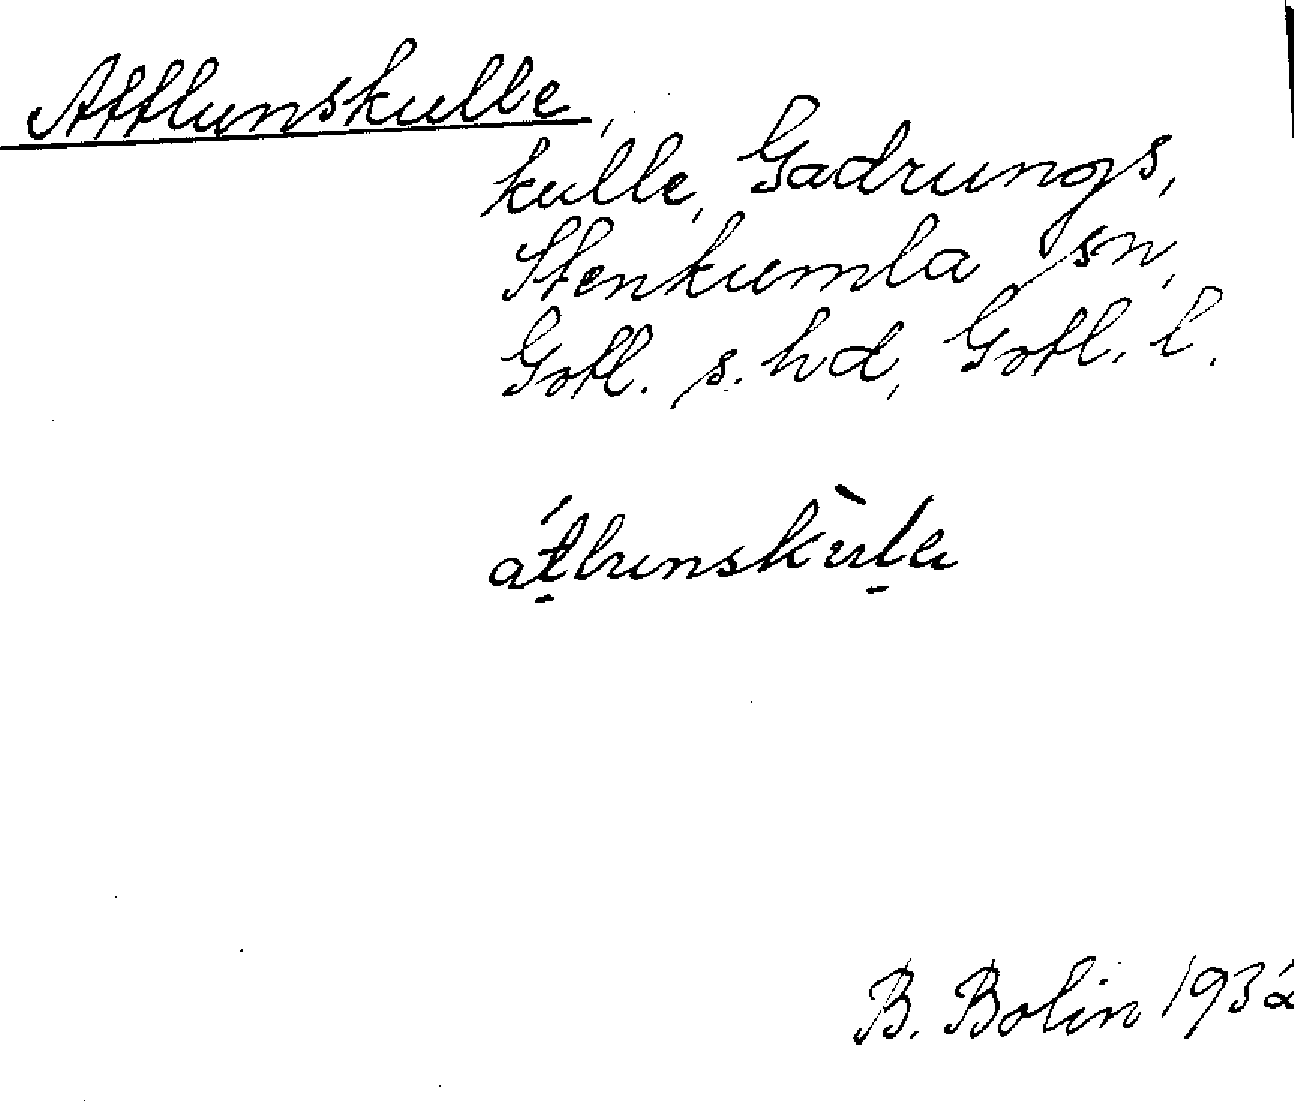 Attlunskulle,
kulle, Gadrungs,
Stenkumla sn,
Gotl. s. hd, Gotl. l.
át̠lunskùl̠a
B. Bolin 1932